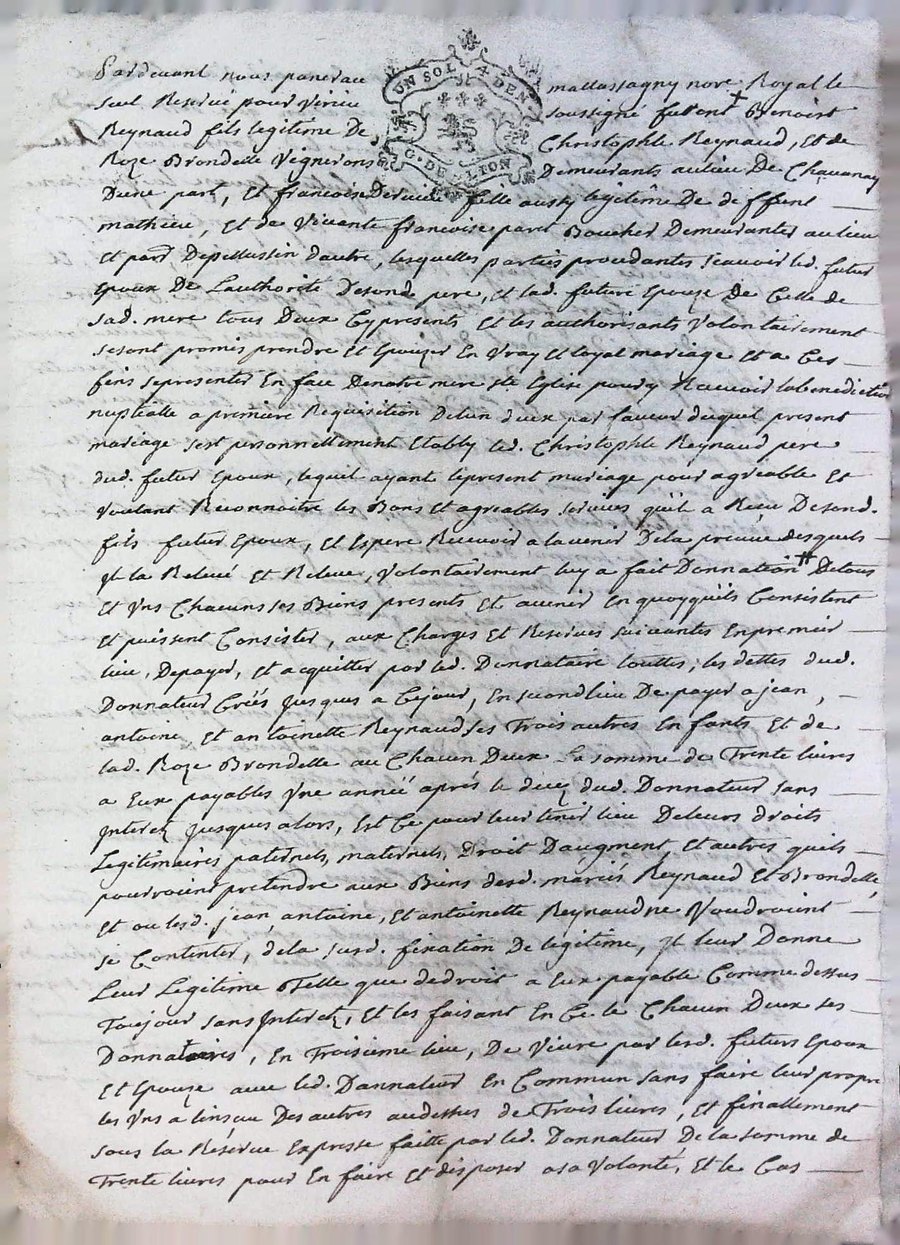 Pardevant nous pancrace mallassagny nore. Royal le
seul Reservé pour Virieu soussigné furent + Benoist
Reynaud fils legitime De Christophle Reynaud, Et de
Roze Brondelle Vignerons Demeurants au lieu De Chavanay
UN SOL 4 DEN
G. DE LION
D'une part, Et francoise Dervieu fille aussy legitime De deffunt
mathieu, Et de Vivante francoise Boucher Demeurantes au lieu
Et par. De pellussin d'autre, lesquelles parties procedantes scavoir led. futur
Epoux De L'authorité De sond. pere, Et lad. future Epouze De Celle de
Sad. mere tous Deux Cy presents Et les authorisants Volontairement
se sont promis prendre Et Epouzer En Vray Et loyal mariage Et a Ces
fins se presenter En face De notre mere Ste Eglise pour y Recevoir la benediction
nuptialle a premiere Requisition De l'un d'eux par faveur duquel present
mariage s'est personnellement Etably led. Christophle Reynaud pere
dud. futur Epoux, lequel ayant le present mariage pour agreable Et
Voulant Reconnoitre les Bons Et agreables services qu'il a Receu De sond.
fils futur Epoux, Et Espere Recevoir a lavenir De la preuve desquels
Jl la Relevé Et Releve, Volontairement luy a fait Donnation # De tous
Et Vns Chacuns ses Biens presents Et avenir En quoy qu'ils Consistent
Et puissent Consister, aux Charges Et Reserves suivantes En premier
lieu, De payer, Et acquitter par led. Donnataire touttes, les dettes dud.
Donnateur Créés Jusques a Ce jour, En second lieu De payer a jean,
antoine, Et antoinette Reynaud ses Trois autres Enfants Et de
lad. Roze Brondelle au Chacun Deux La somme de Trente livres
a Eux payables Vne année aprés le decez dud. Donnateur sans
Jnterest Jusques alors, Est Ce pour leur tenir lieu De leurs droits
Legitimaires paternels, maternels, Droit D'augment, Et autres quils
pourroint pretendre aux Biens desd. mariés Reynaud Et Brondelle,
Et ou lesd. jean, antoine, Et antoinette Reynaud ne Voudroint
se Contenter, de la susd. fixation De legitime, Jl leur Donne
Leur Legitime Telle que de droit a Eux payable Comme dessus
Toujour sans Jnterest, Et les faisant En Ce le Chacun Deux ses
Donnataires, En Troisieme lieu, De Vivre par lesd. futurs Epoux
Et Epouze avec led. Donnateur En Commun sans faire leur propre
les Vns a l'insceu Des autres audessus de Trois livres, Et finallement
sous la Réserve Expresse faitte par led. Donnateur De la somme de
Trente livres pour En faire Et disposer a sa Volonté, Et le Cas